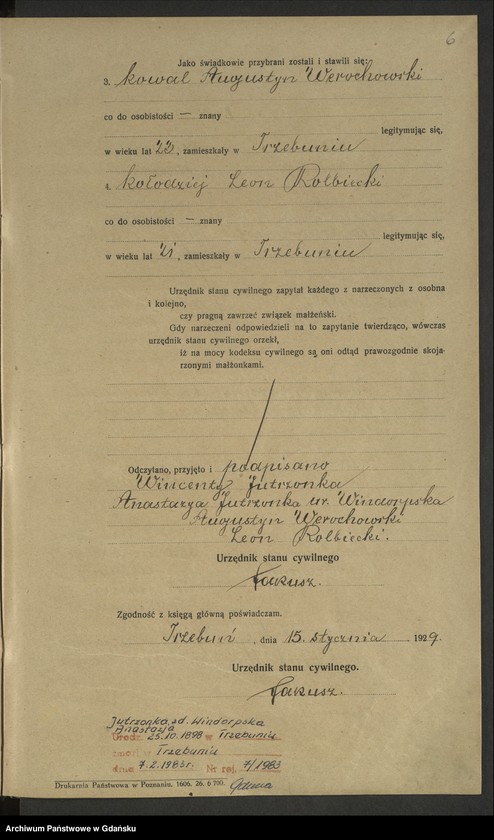 6
Jako świadkowie przybrani zostali i stawili się:
3. kowal Augustyn Werochowski
co do osobistości — znany
legitymując się,
w wieku lat 22, zamieszkały w Trzebuniu
4. kołodziej Leon Rolbiecki
co do osobistości — znany
legitymując się,
w wieku lat 21, zamieszkały w Trzebuniu
Urzędnik stanu cywilnego zapytał każdego z narzeczonych z osobna
i kolejno,
czy pragną zawrzeć związek małżeński.
Gdy narzeczeni odpowiedzieli na to zapytanie twierdząco, wówczas
urzędnik stanu cywilnego orzekł,
iż na mocy kodeksu cywilnego są oni odtąd prawozgodnie skoja-
rzonymi małżonkami.
Odczytano, przyjęto i podpisano
Wincenty Jutrzonka
Anastazya Jutrzonka ur. Windorpska
Augustyn Werochowski
Leon Rolbiecki.
Urzędnik stanu cywilnego
Jakusz.
Zgodność z księgą główną poświadczam.
Trzebuń, dnia 15. stycznia 1929.
Urzędnik stanu cywilnego.
Jakusz.
Jutrzonka zd. Windorpska
Anastazja
Urodz. 25.10.1898 w Trzebuniu
zmarł w Trzebuniu
dnia 7.2.1983r. Nr rej. 7/1983
Drukarnia Państwowa w Poznaniu. 1606. 26. 6 700.
Archiwum Państwowe w Gdańsku